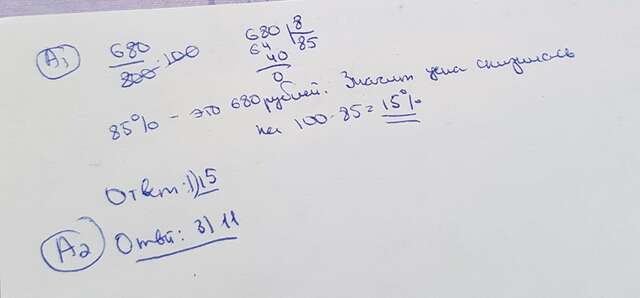 A1
680/800 · 100
680 | 8
64 | 85
40
0
85% - это 680 рублей. Значит цена снизилась
на 100-85=15%
Ответ: 1) 15
A2 Ответ: 3) 11